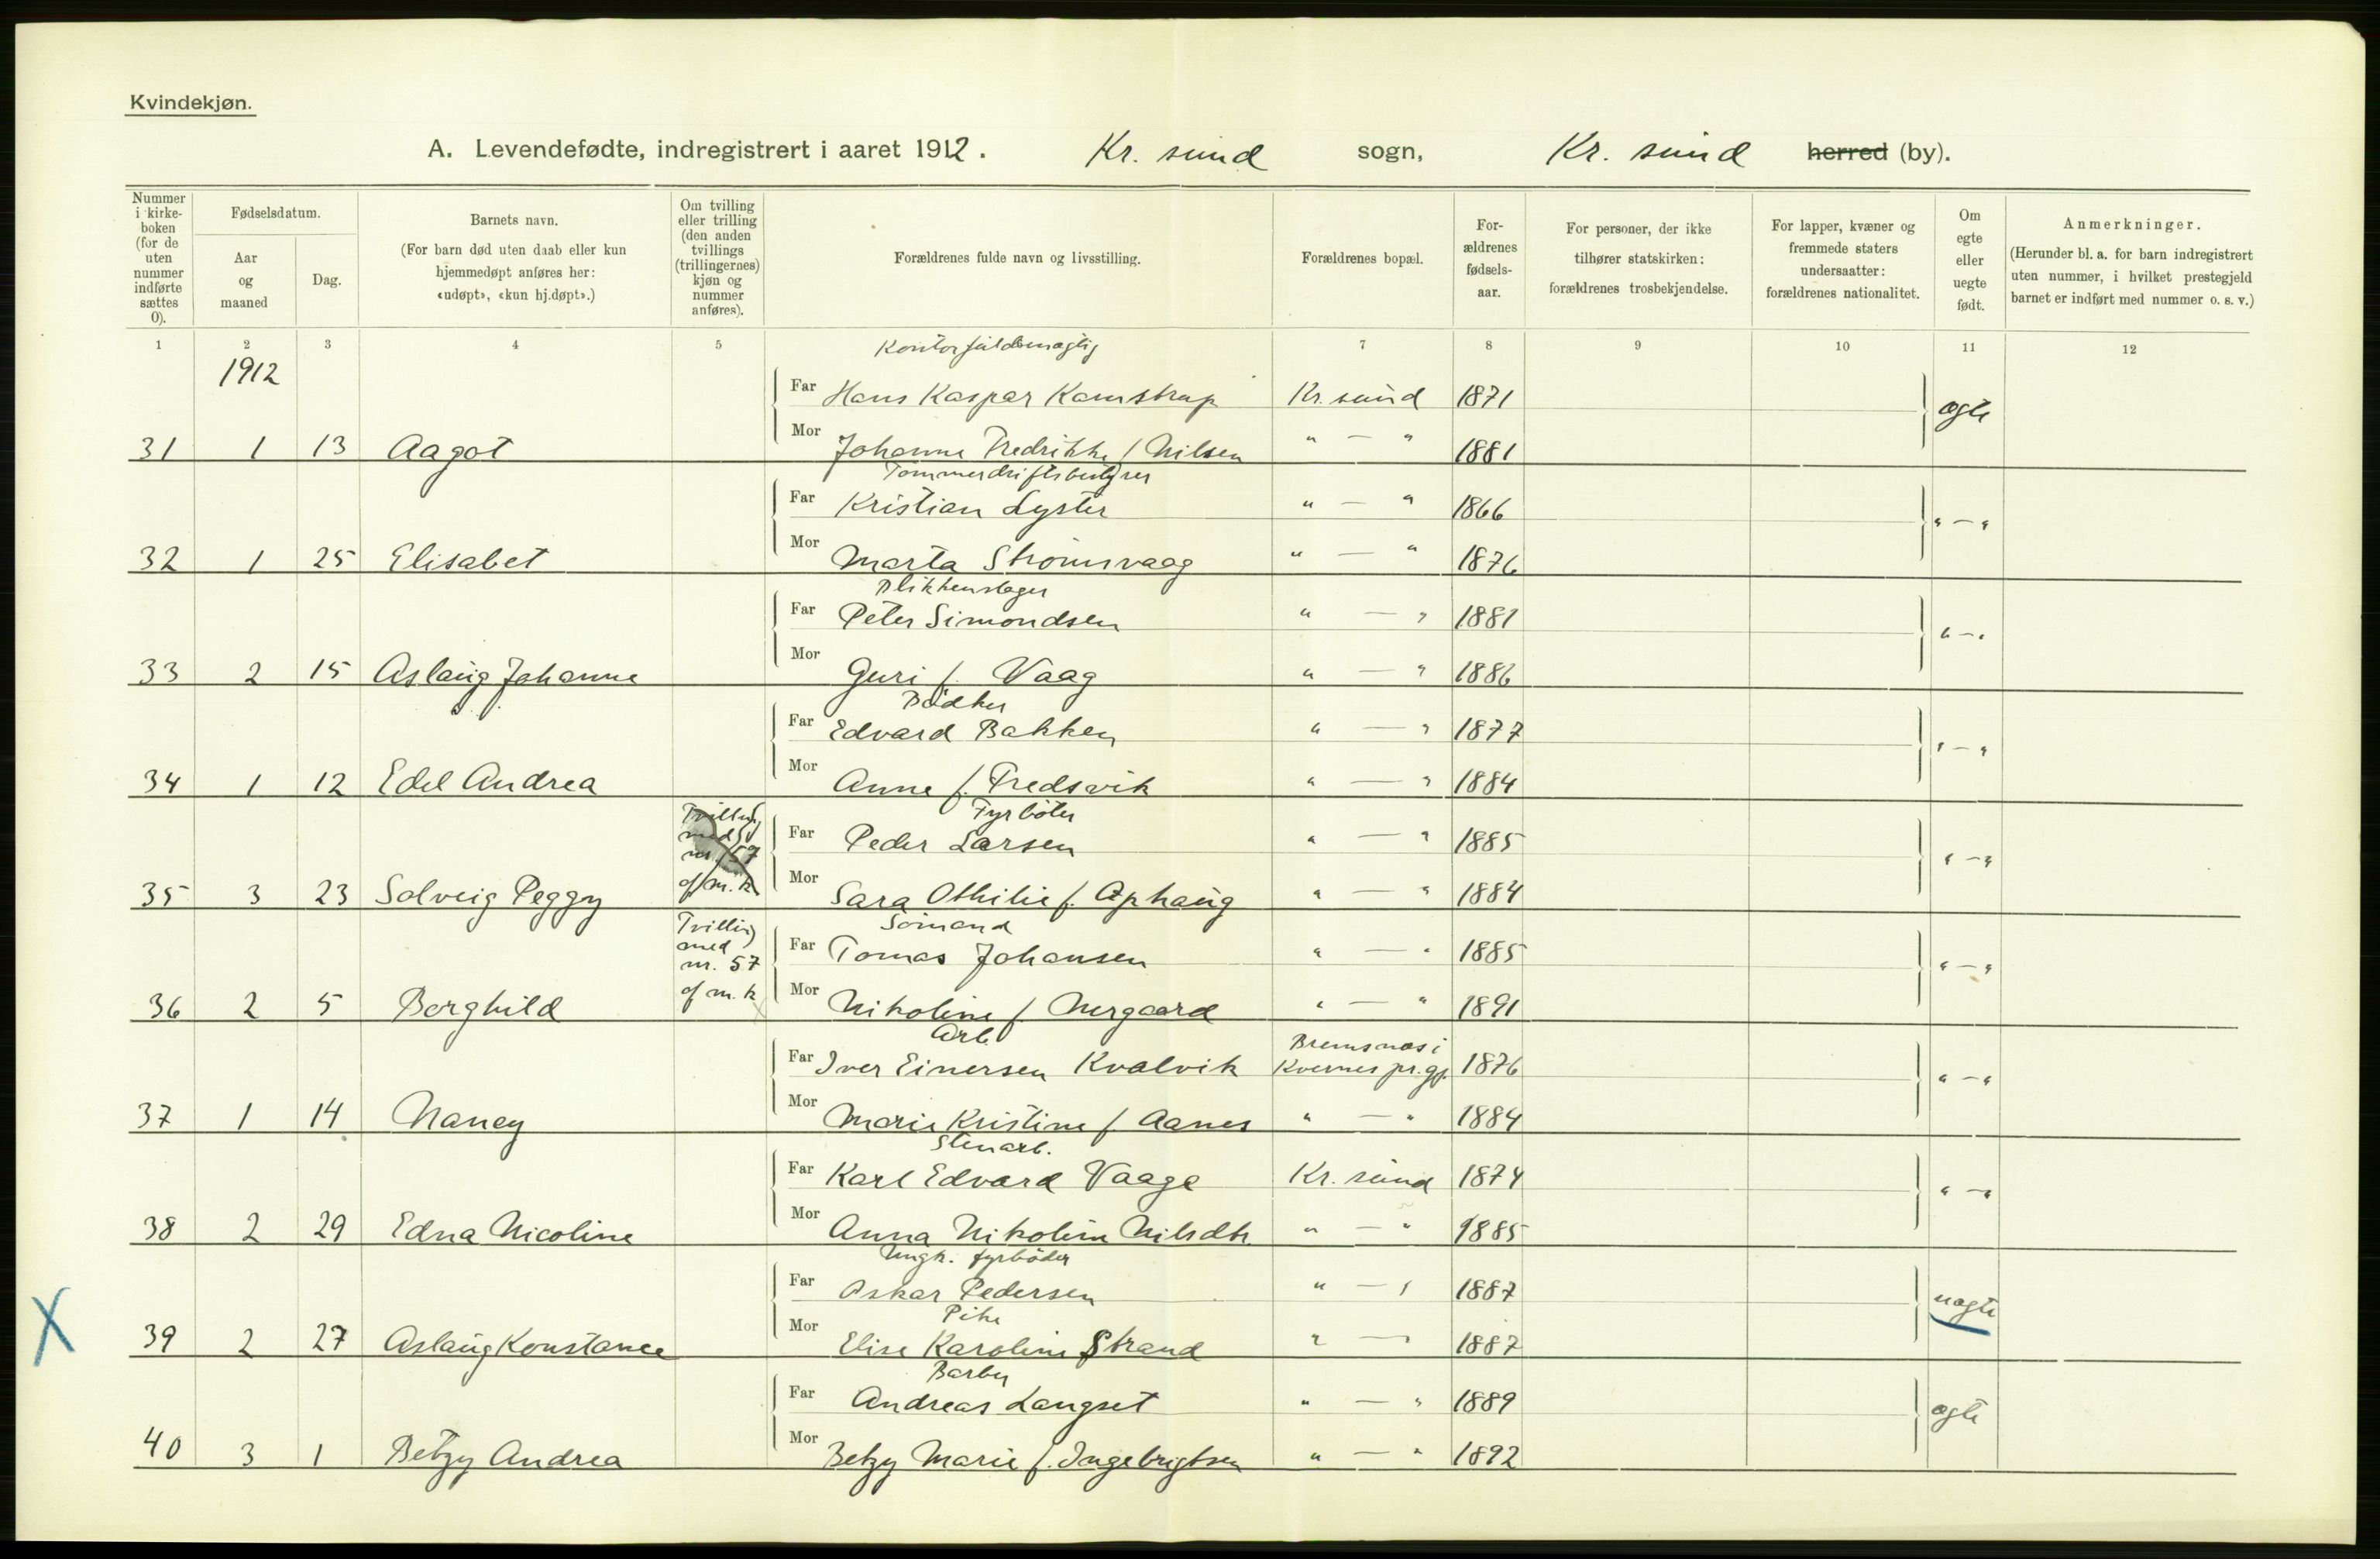 Kvindekjøn.
A. Levendefødte, indregistrert i aaret 1912. Kr. sund sogn, Kr. sund herred (by).
Nummer i kirke-boken (for de uten nummer indførte sættes 0).
Fødselsdatum.
Aar og maaned
Dag.
Barnets navn.
(For barn død uten daab eller kun hjemmedøpt anføres her: «udøpt», «kun hj.døpt».)
Om tvilling eller trilling (den anden tvillings (trillingernes) kjøn og nummer anføres).
Forældrenes fulde navn og livsstilling.
Forældrenes bopæl.
For-ældrenes fødsels-aar.
For personer, der ikke tilhører statskirken: forældrenes trosbekjendelse.
For lapper, kvæner og fremmede staters undersaatter: forældrenes nationalitet.
Om egte eller uegte født.
Anmerkninger.
(Herunder bl. a. for barn indregistrert uten nummer, i hvilket prestegjeld barnet er indført med nummer o. s. v.)
1 2 3 4 5 7 8 9 10 11 12
1912
Kontorfuldmægtig
Far Hans Kaspar Kamstrup Kr. sund 1871 ægte
31 1 13 Aagot Mor Johanne Fredrikke f. Nilsen " — " 1881
Tømmerdriftsbestyrer
Far Kristian Lyster " — " 1866 " — "
32 1 25 Elisabet Mor Marta Strømsvaag " — " 1876
Blikkenslager
Far Peter Simondsen " — " 1881 " — "
33 2 15 Aslaug Johanne Mor Guri f. Vaag " — " 1886
Bødker
Far Edvard Bakken " — " 1877 " — "
34 1 12 Edel Andrea Mor Anne f. Fredsvik " — " 1884
Tvilling med nr. 57 af m. k
Fyrbøter
Far Peder Larsen " — " 1885 " — "
35 3 23 Solveig Peggy Mor Sara Othilie f. Aphaug " — " 1884
Tvilling med nr. 57 af m. k
Sømand
Far Tomas Johansen " — " 1885 " — "
36 2 5 Borghild Mor Nikoline f. Nergaard " — " 1891
Arb.
Far Iver Einersen Kvalvik Bremsnæs i Kvernes pr.gj. 1876 " — "
37 1 14 Nancy Mor Marie Kristine f. Aanes " — " 1884
Stenarb.
Far Karl Edvard Vaage Kr. sund 1874 " — "
38 2 29 Edna Nicoline Mor Anna Nikoline Nilsdtr. " — " 1885
Ungk. fyrbøder
Far Oskar Pedersen " — " 1887 uægte
Pike
X 39 2 27 Aslaug Konstance Mor Elise Karoline Strand " — " 1887
Barber
Far Andreas Langset " — " 1889 ægte
40 3 1 Betzy Andrea Mor Betzy Marie f. Ingebrigtsen " — " 1892